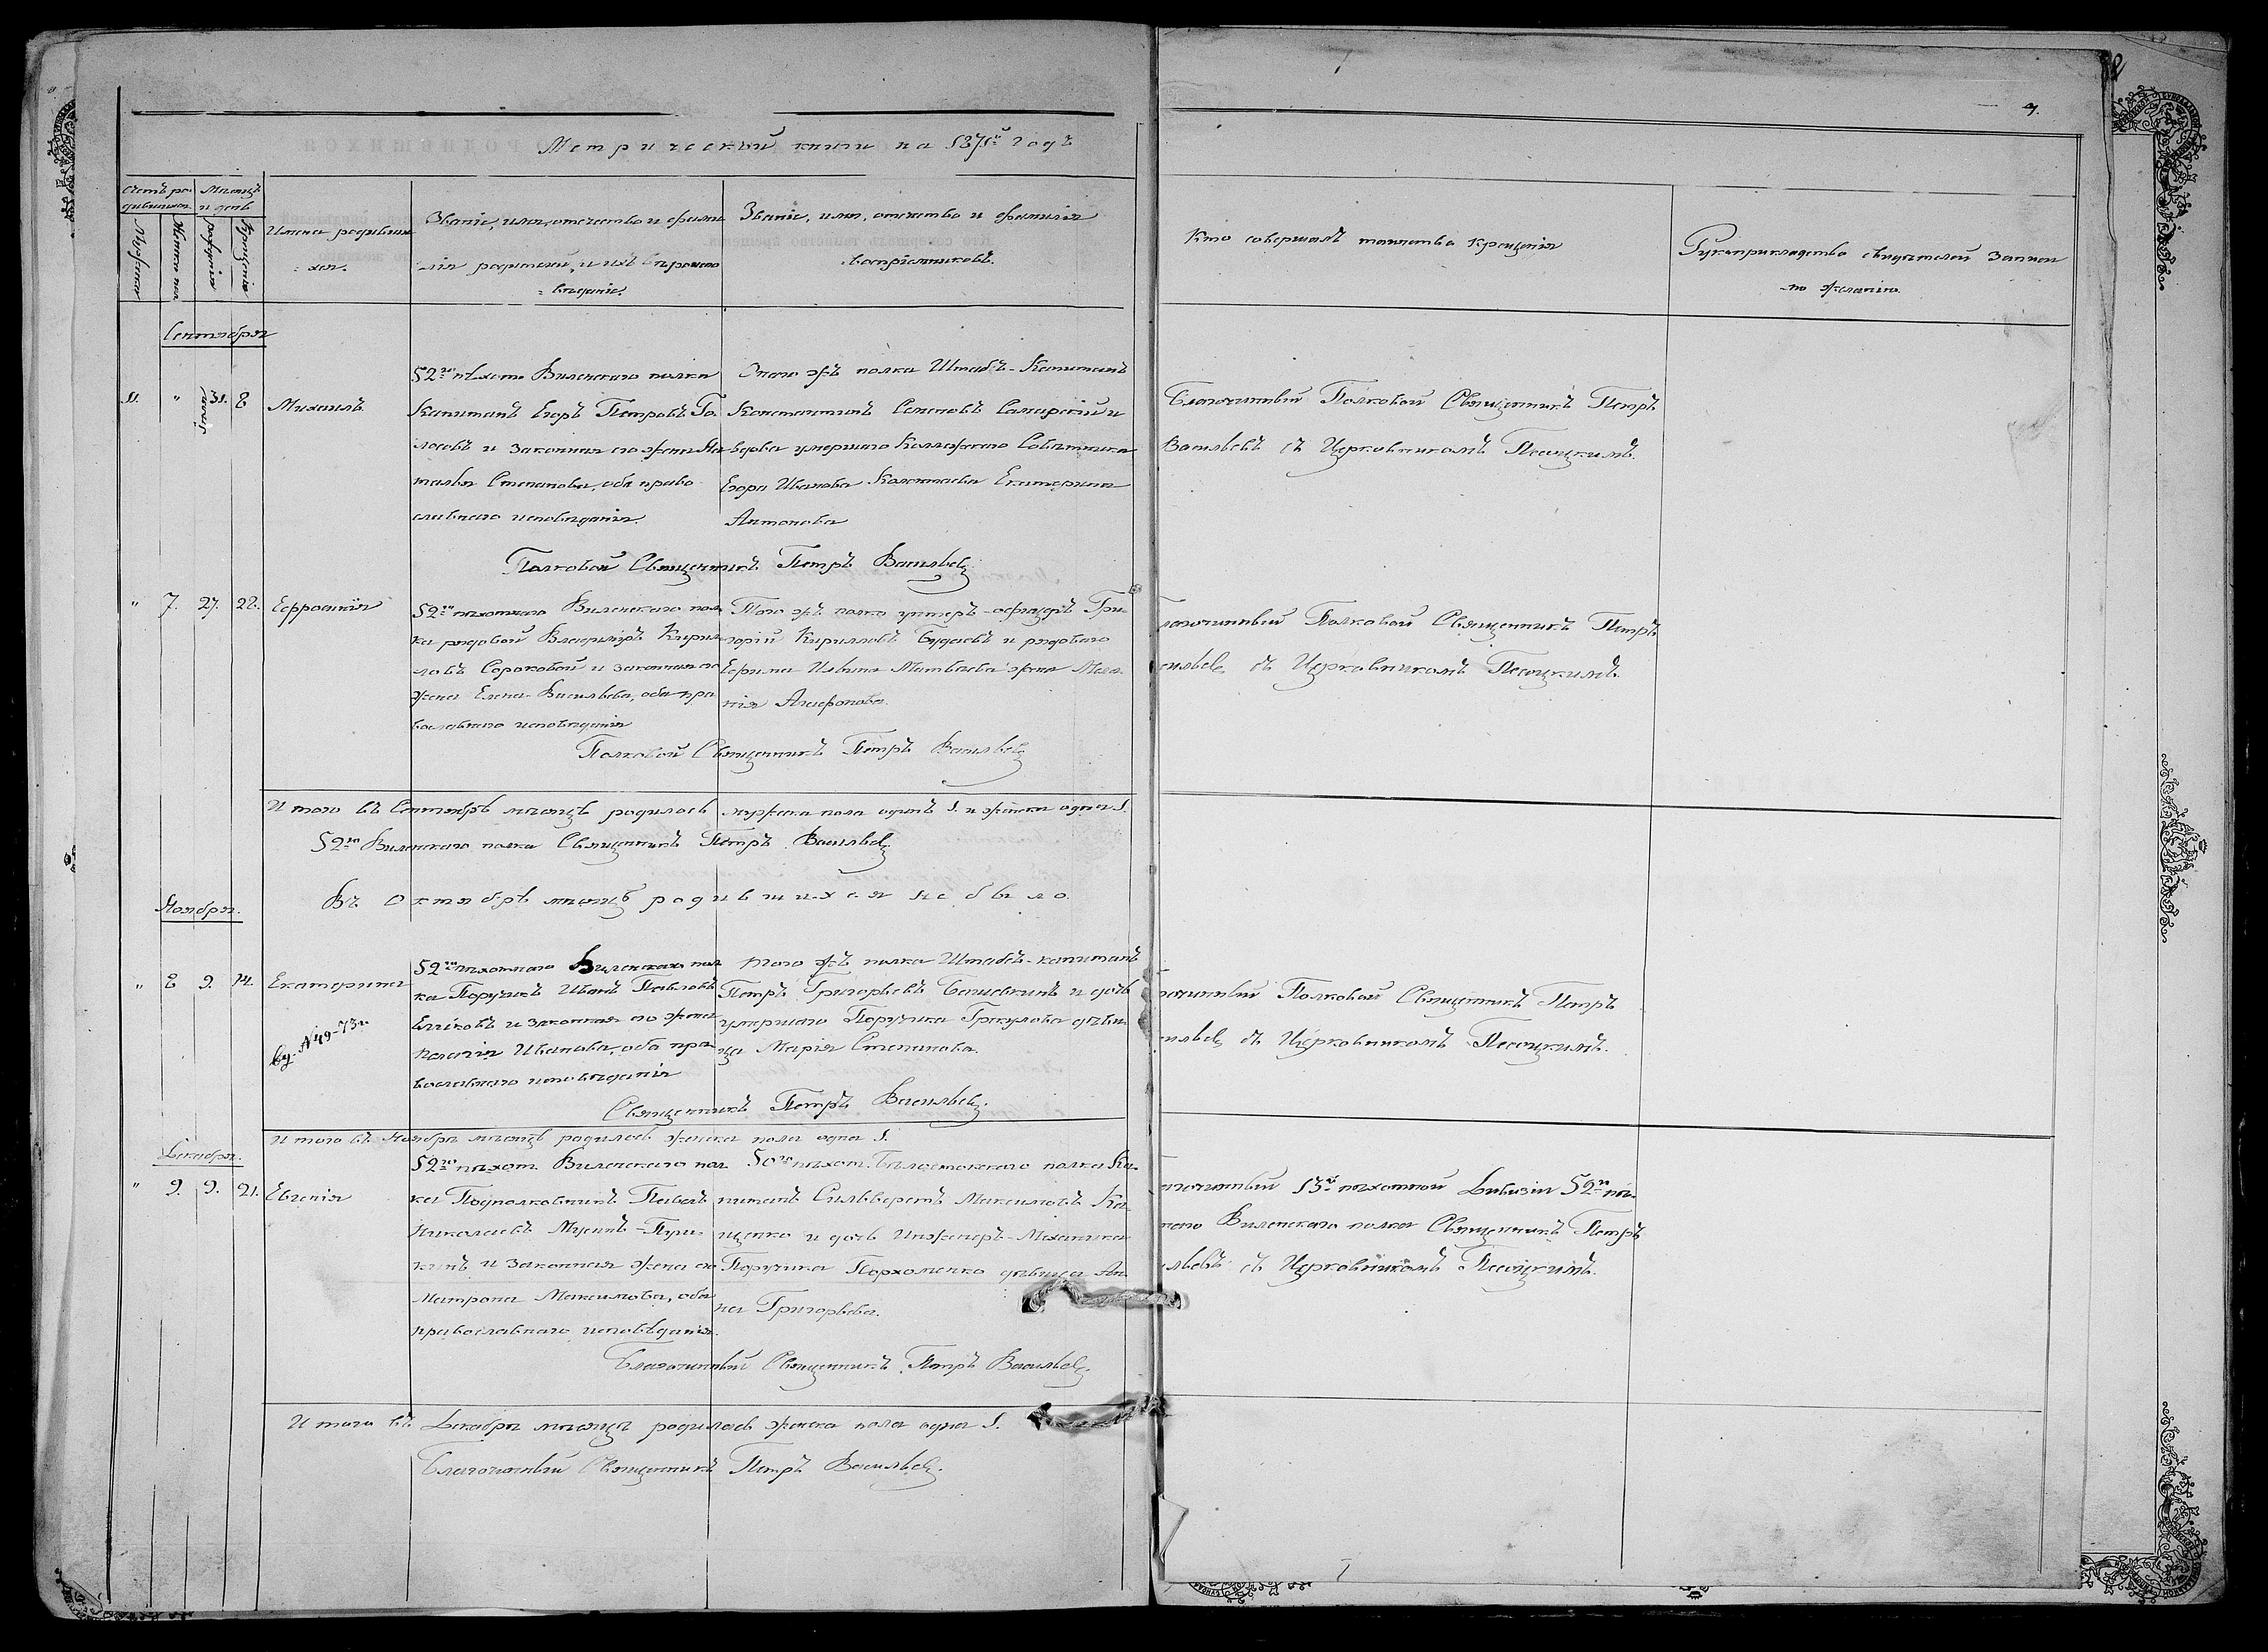 82
7.
Метрической книги на 1871й годъ
Счетъ ро-
дившихся
Мѣсяцъ
и день
Мужеска
Женска пол
рожденія
Крещенія
Имена родивших
-ся.
Званіе, имя, отечество и фами
лія родителей, и ихъ вѣроиспо
-вѣданіе.
Званіе, имя, отечество и фамилія
воспріемниковъ.
Кто совершалъ таинство крещенія
Рукоприкладство свидѣтелей записи
по желанію.
Сентября
11. " 31. 8 Михаилъ
52го пѣхотн Виленскаго полка
Капитанъ Егоръ Петровъ Го
лосовъ и законная его жена На
талья Степанова, оба право
славнаго исповѣданія.
Онаго жъ полка Штабсъ-Капитанъ
Константинъ Семеновъ Самарскій и
вдова умершаго Коллежскаго Совѣтника
Егора Иванова Екатерина
Антонова
Благочинный Полковой Священникъ Петръ
Васильевъ съ Церковникомъ Песоцкимъ.
Полковой Священникъ Петръ Васильевъ
" 7. 27. 28. Ефросинія
52го пѣхотнаго Виленскаго пол
ка рядовой Владиміръ Кирил
ловъ Сороковой и законная его
жена Елена Васильева, оба пра
вославнаго исповѣданія
Того жъ полка унтеръ-офицеръ Гри
горій Кирилловъ Будаевъ и рядоваго
Ефима Матвѣева жена Мела
нія Агафонова.
лагочинный Полковой Священникъ Петръ
сильевъ съ Церковникомъ Песоцкимъ.
Полковой Священникъ Петръ Васильевъ
Итого въ Сентябрѣ мѣсяцѣ родилось мужска пола одинъ 1. и женска одна 1.
52го Виленскаго полка Священникъ Петръ Васильевъ
Въ Октябрѣ мѣсяцѣ родившихся не было.
Ноября.
" 8 9. 14. Екатерина
52го пѣхотнаго Виленскаго пол
ка Поручикъ Иванъ Павловъ
и законная его жена
Пелагія Иванова, оба пра
вославнаго исповѣданія
Того жъ полка Штабсъ-капитанъ
Петръ Григорьевъ и дочь
умершаго Поручика Грекулова дѣви
ца Марія Степанова.
гочинный Полковой Священникъ Петръ
сильевъ съ Церковникомъ Песоцкимъ.
№49-73г.
Священникъ Петръ Васильевъ.
Итого въ Ноябрѣ мѣсяцѣ родилось женска пола одна 1.
Декабря.
" 9. 9. 21. Евгенія
52го пѣхот. Виленскаго пол
ка Подполковникъ Павелъ
Николаевъ Мусинъ-Пуш
кинъ и законная жена его
Матрона Максимова, оба
православнаго исповѣданія.
50го пѣхот. Бѣлостокскаго полка Ка
питанъ Сильверстъ Максимовъ Ка
щенко и дочь Инженеръ-Механика
Поручика Пархоменко дѣвица Ан
на Григорьева.
агочинный 13й пѣхотной Дивизіи 52го пѣ
тнаго Виленскаго полка Священникъ Петръ
ильевъ съ Церковникомъ Песоцкимъ.
Благочинный Священникъ Петръ Васильевъ.
Итого въ Декабрѣ мѣсяцѣ родилось женска пола одна 1.
Благочинный Священникъ Петръ Васильевъ.